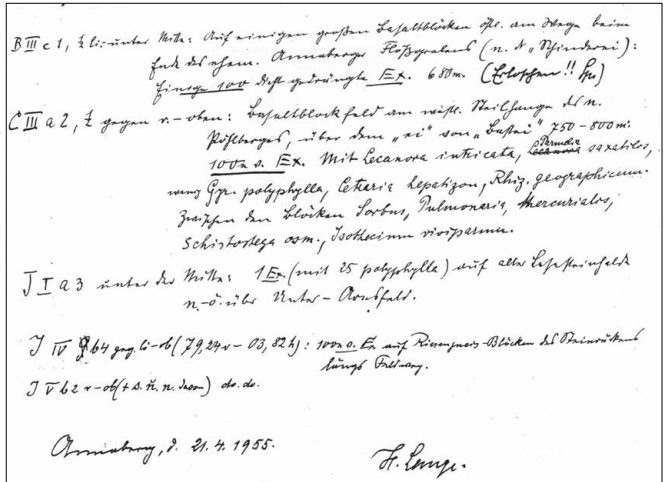 B III c 1, Z li. unter Mitte: Auf einigen großen Basaltblöcken östl. am Wege beim
Ende des ehem. Annaberger Floßgrabens (n. d. „Schinderei):
Einige 100 dicht gedrängte Ex. 680m. (Erloschen!!
C III a 2, Z gegen r.-oben: Basaltblockfeld am westl. Steilhange des n.
Pöhlberges, über dem „ei" von „Bastei" 750-800m.
100e v. Ex. Mit Lecanora intricata, Parmelia saxatilis,
wenig Gyr. polyphylla, Cetraria hepatizon, Rhiz. geographicum.
Zwischen den Blöcken Sorbus, Pulmonaria, Mercurialis,
Schistostega osm., Isothecium viviparum.
J I a 3 unter der Mitte: 1 Ex. (mit 25 polyphylla) auf alter Lesesteinhalde
n.-ö. über Unter-Arnsfeld.
J IV b4 geg. li-ob (79,24r - 03,82h): 100e v. Ex auf Blöcken des Steinrückens
längs Feldweg.
J V b2 r-ob (+ s. ü. n. davon) do. do.
Annaberg, d. 21.4.1955.
H. Lange.